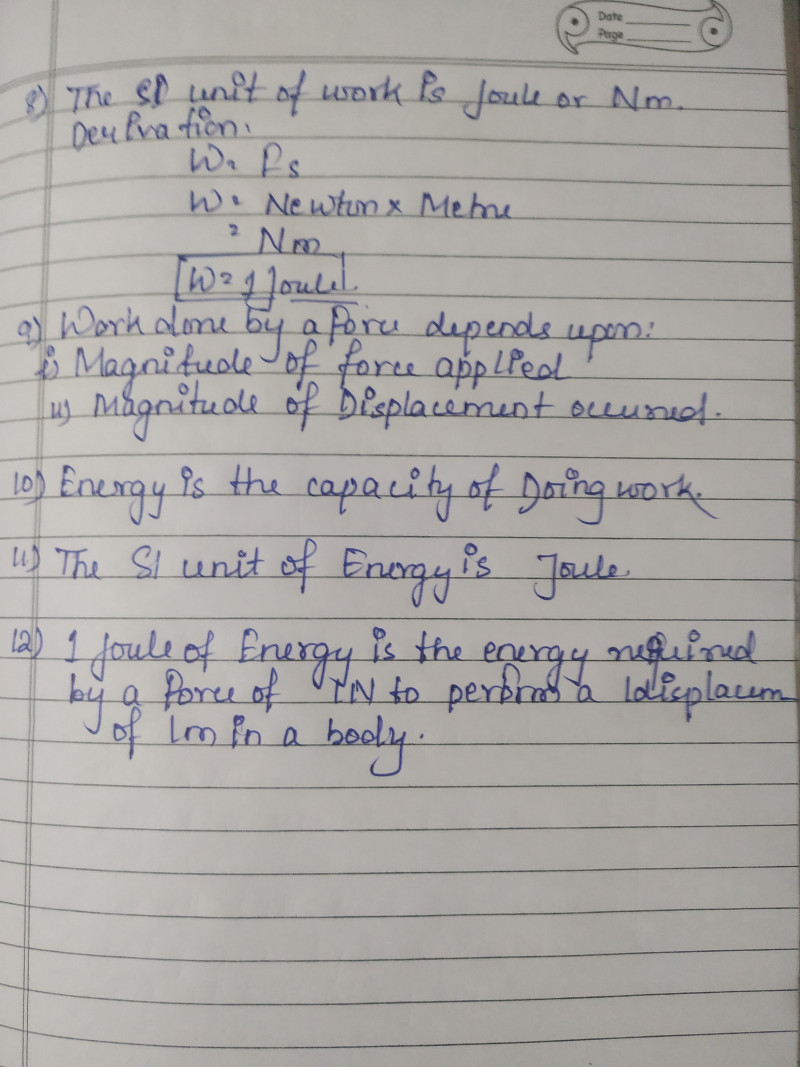 Date
Page
8) The SI unit of work is Joule or Nm.
Derivation:
W= Fs
W= Newton x Metre
= Nm
W= 1 Joule
9) Work done by a force depends upon:
i) Magnitude of force applied
ii) Magnitude of Displacement occured.
10) Energy is the capacity of Doing work.
11) The SI unit of Energy is Joule
12) 1 Joule of Energy is the energy required
by a force of 1N to perform a displacem
of 1m in a body.